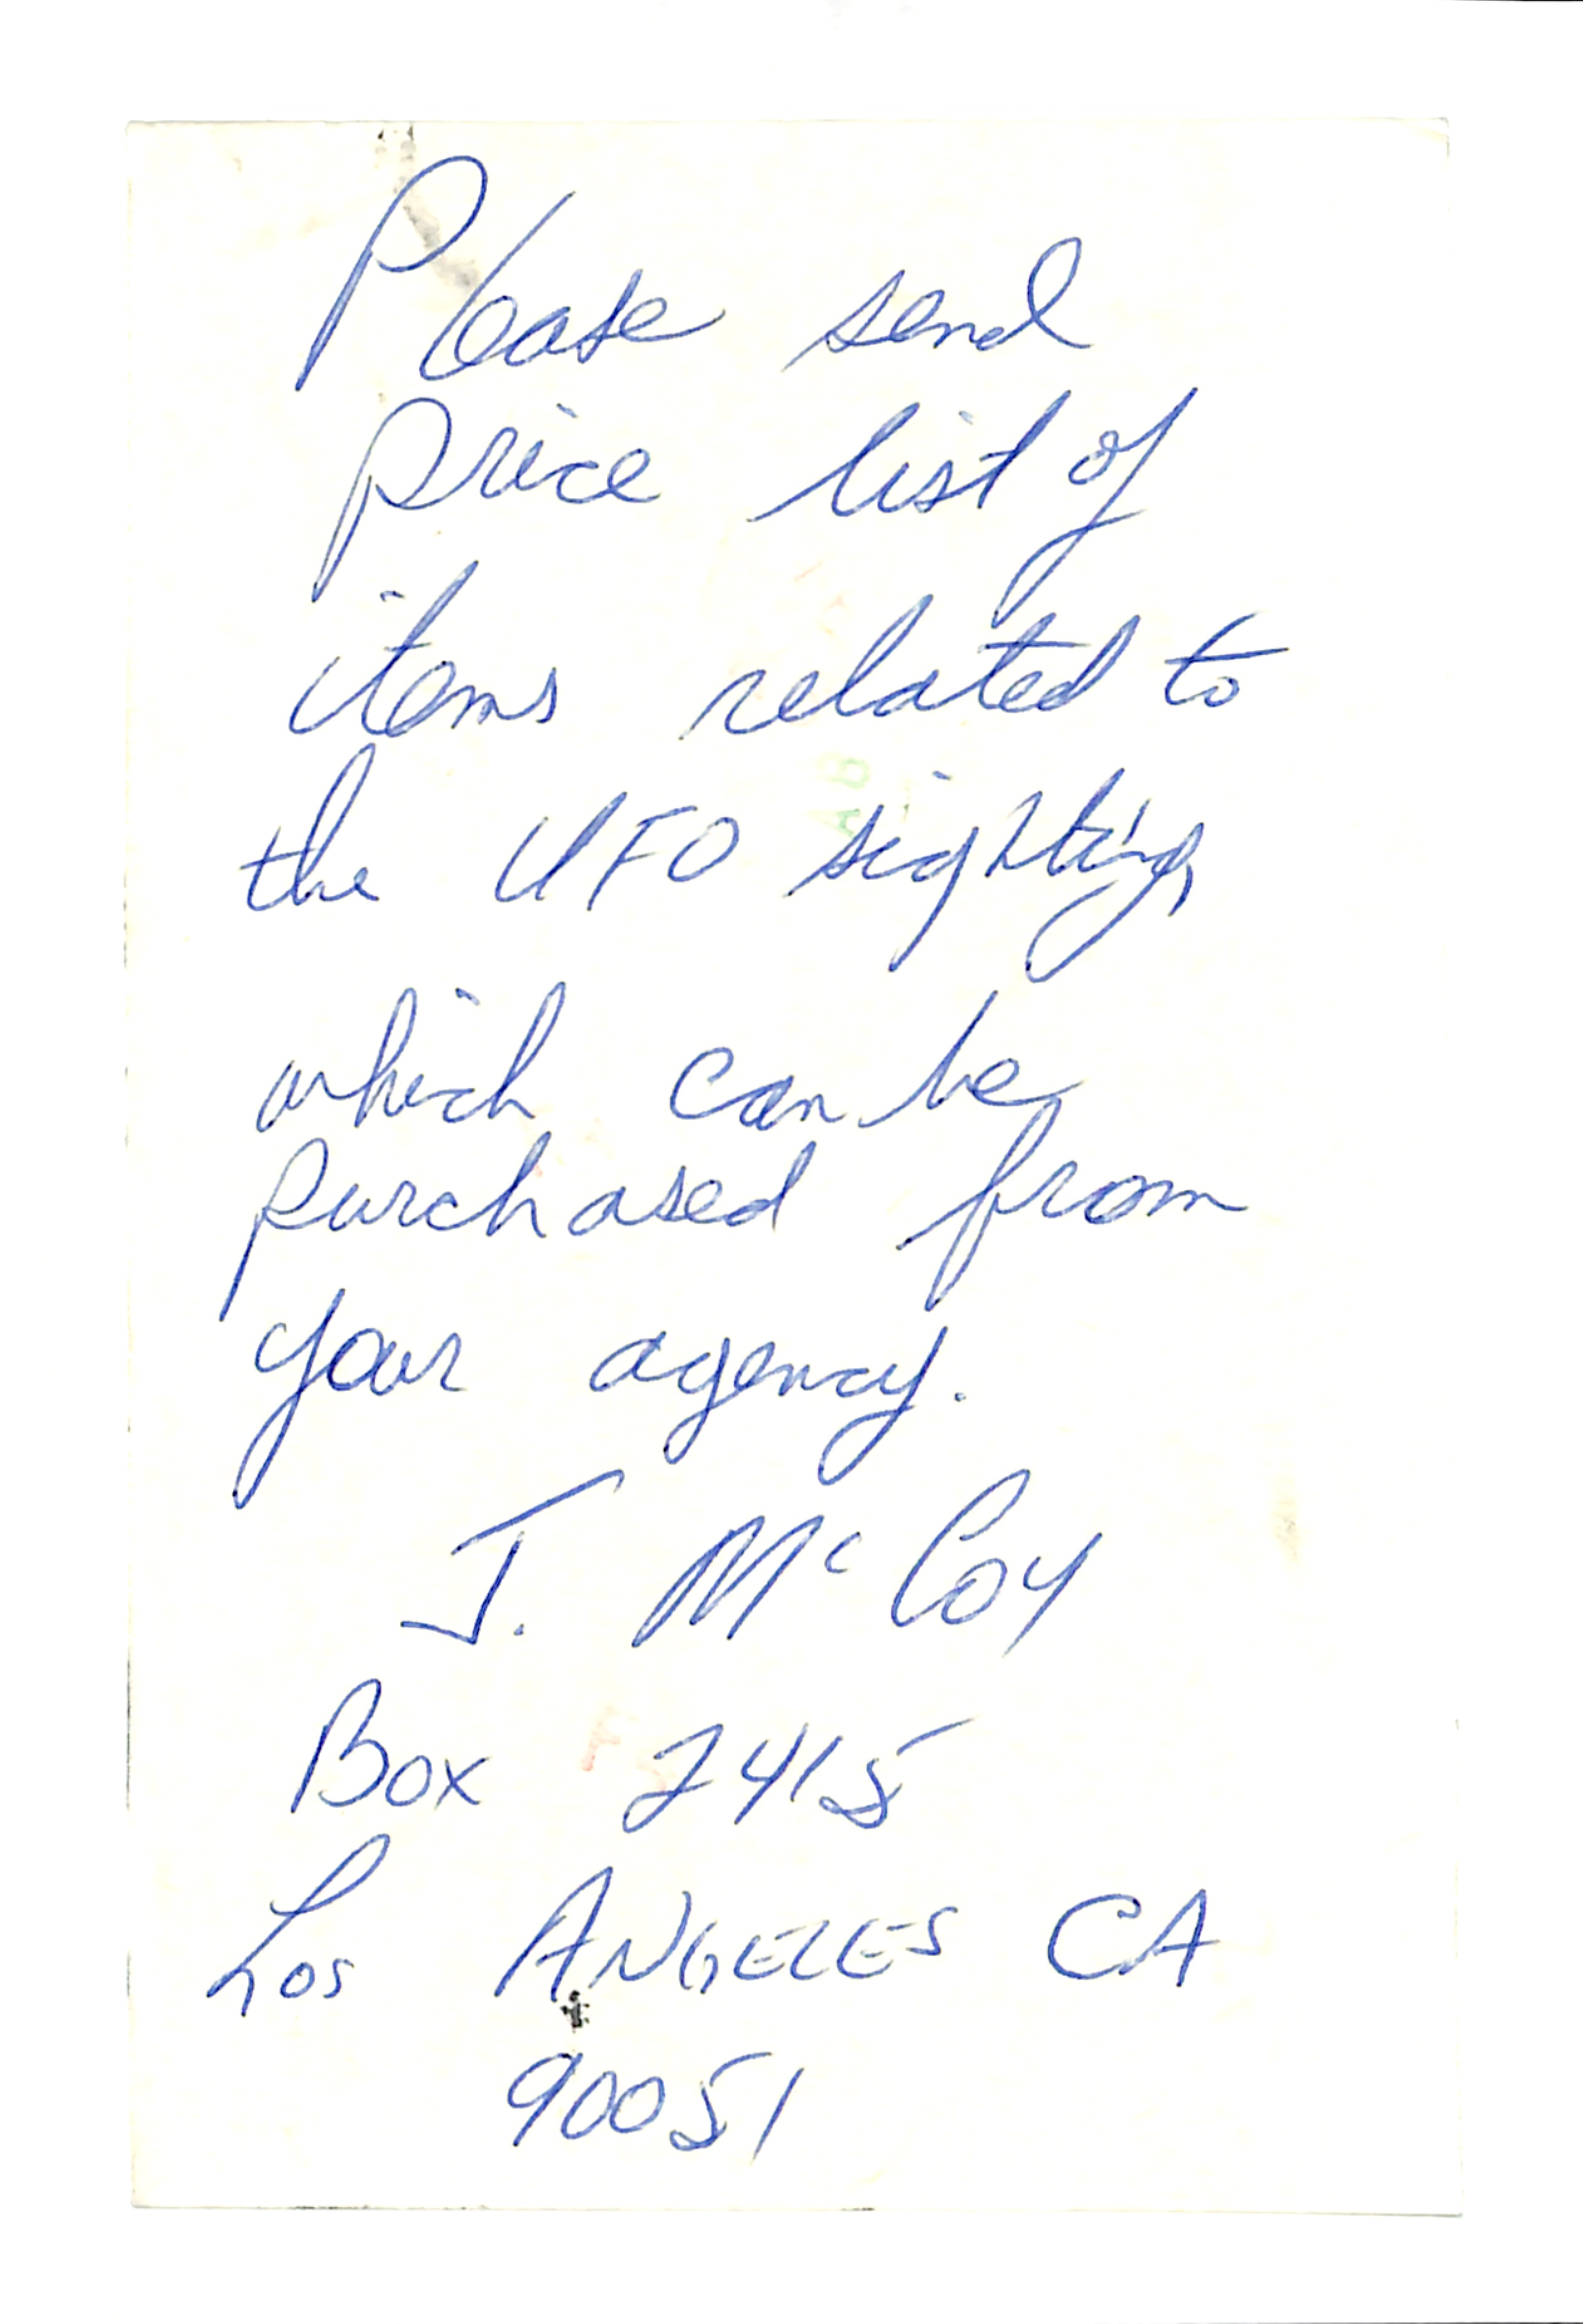 Please send
price list of
items related to
the UFO sighting,
which can be
purchased from
your agency.
J. McCoy
Box 2415
Los ANGELES CA
90051